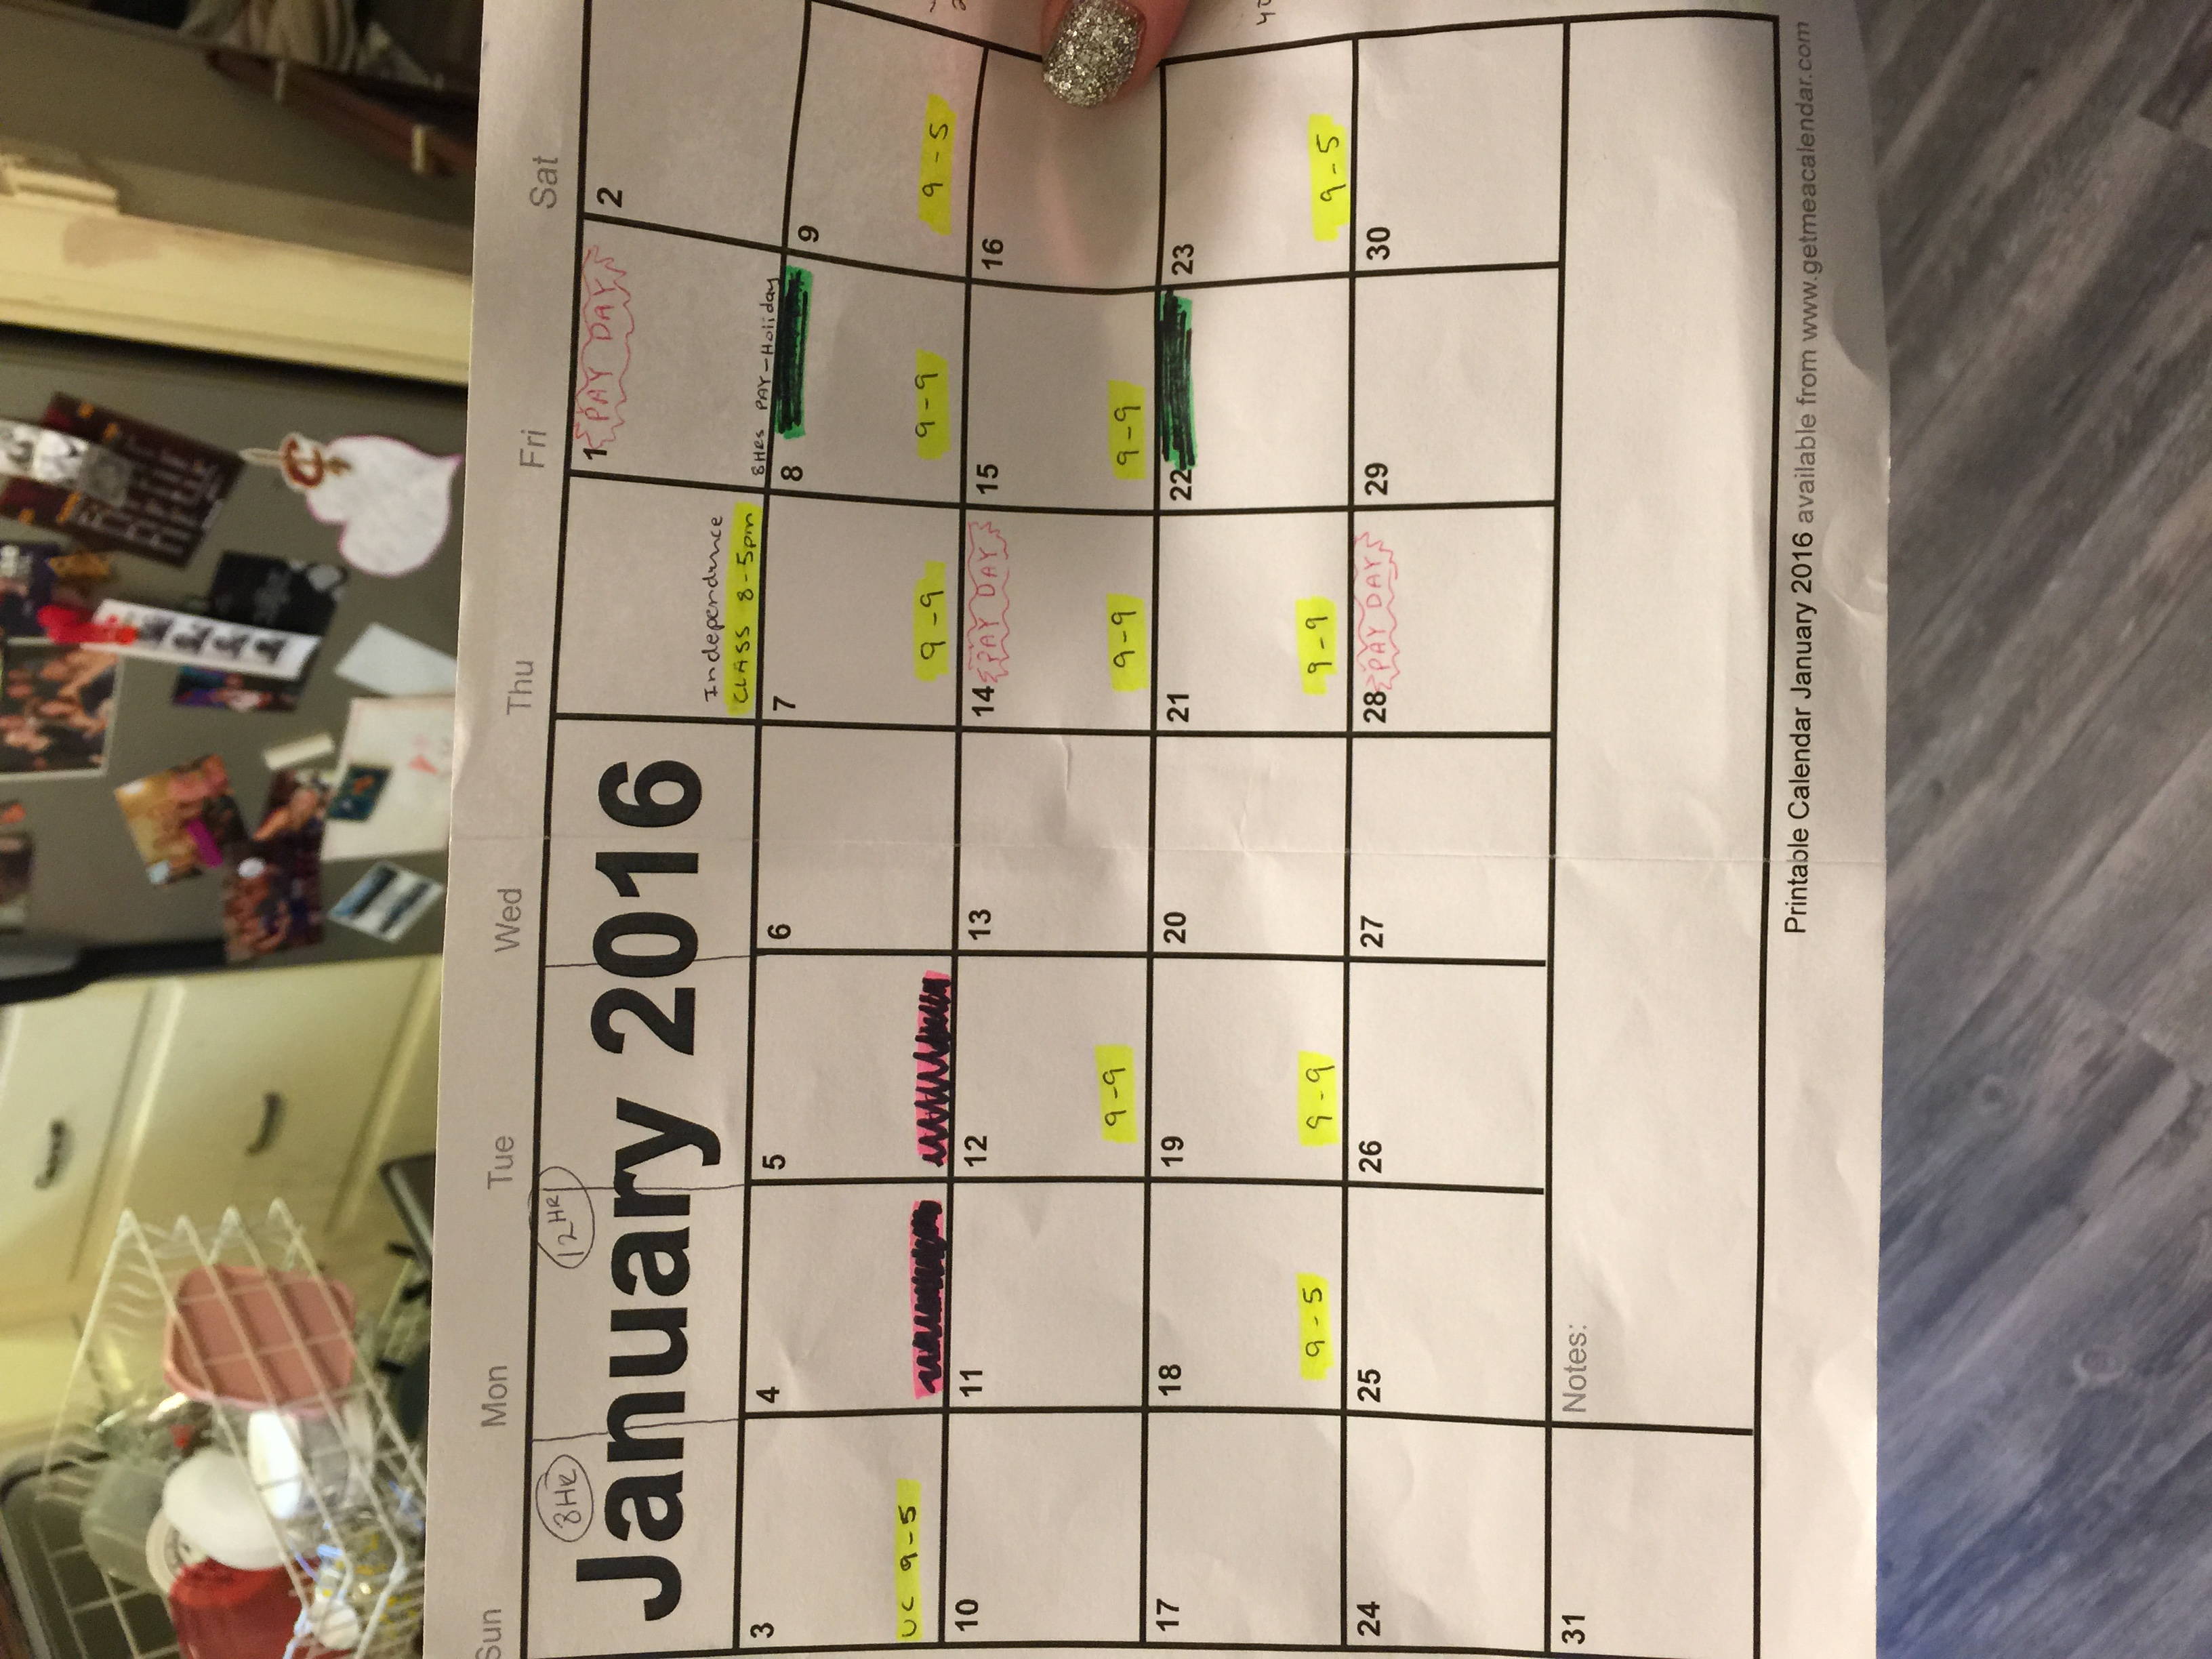 Sun Mon Tue Wed Thu Fri Sat
8HR 12HR
January 2016
1 PAY DAY 2
Independence
CLASS 8-5pm
8HRS PAY-Holiday
3 4 5 6 7 8 9
UC 9-5 9-9 9-9 9-5
10 11 12 13 14 PAY DAY 15 16
9-9 9-9 9-9
17 18 19 20 21 22 23
9-5 9-9 9-9 9-5
24 25 26 27 28 PAY DAY 29 30
31 Notes:
Printable Calendar January 2016 available from www.getmeacalendar.com